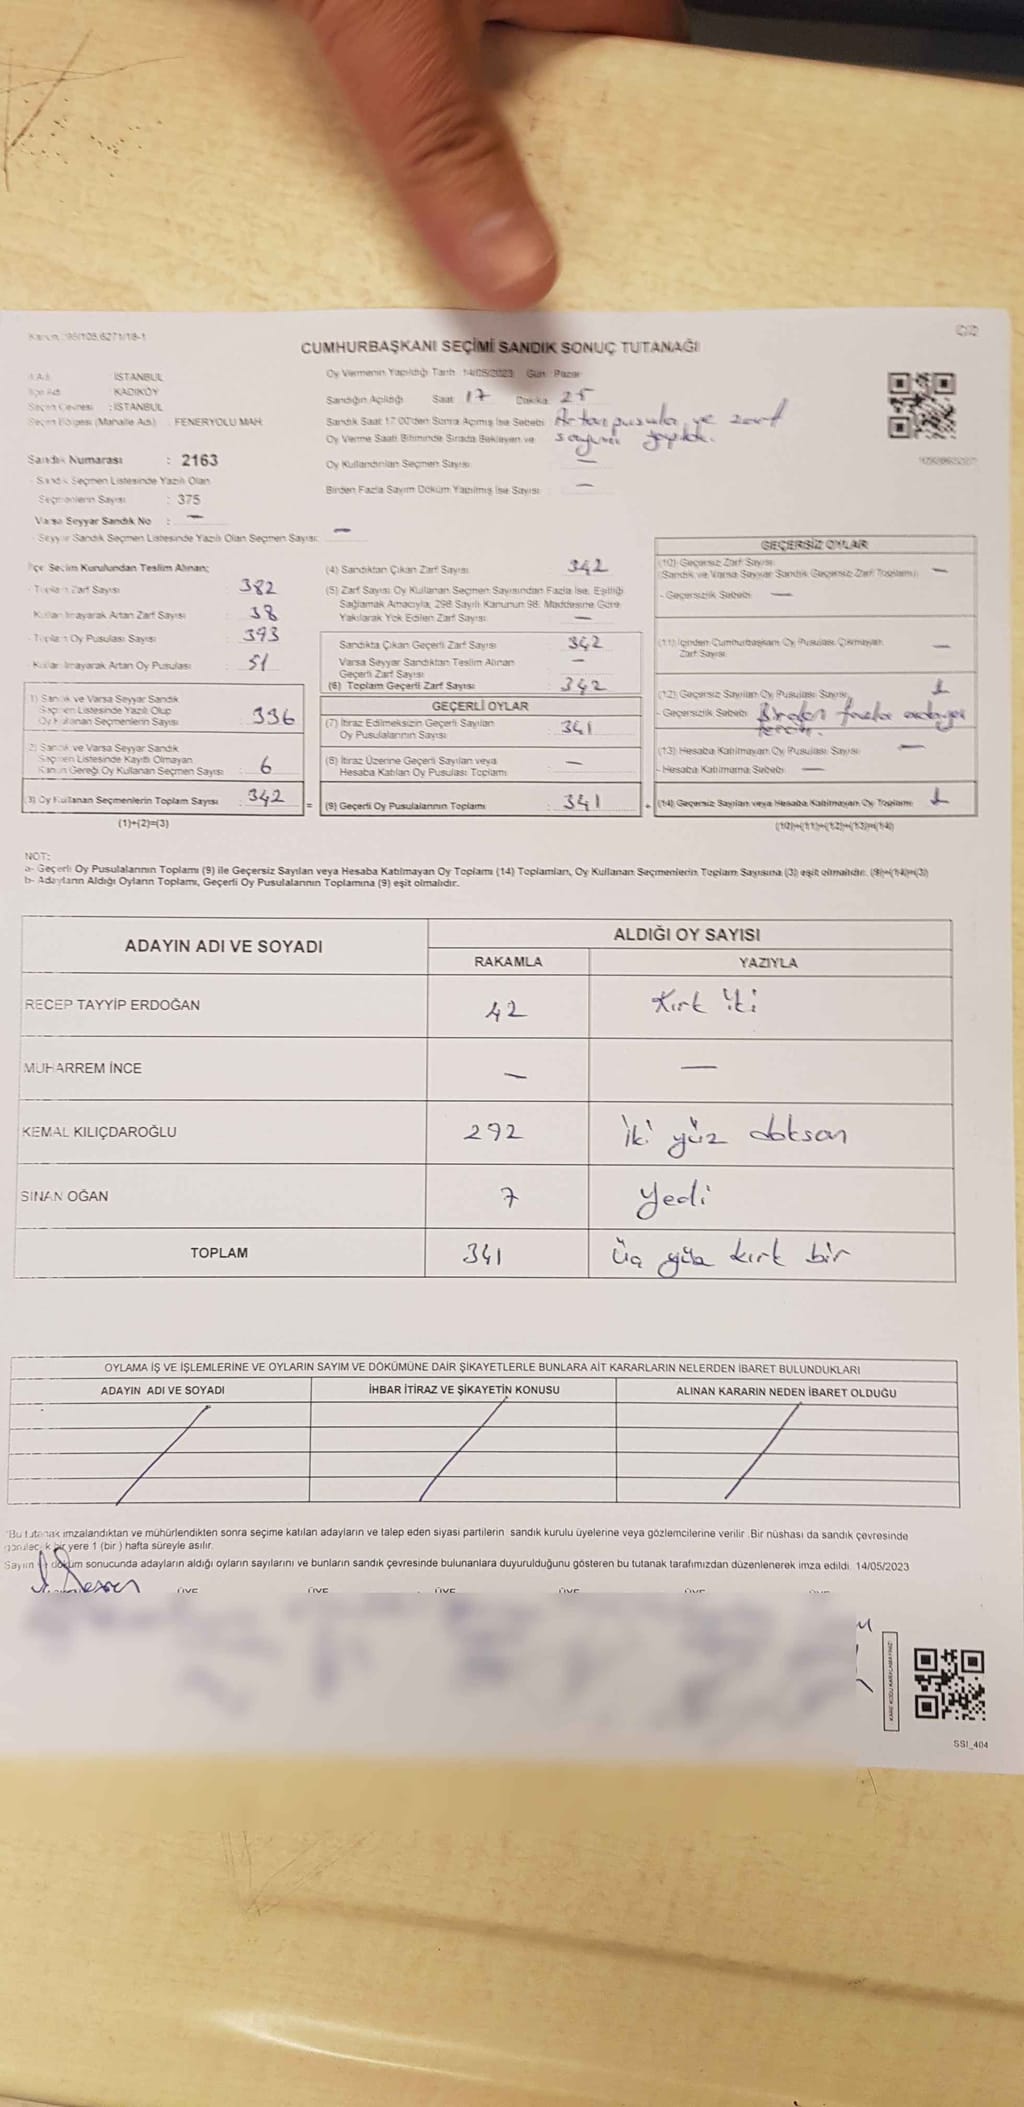 CUMHURBAŞKANI SEÇİMİ SANDIK SONUÇ TUTANAĞI
İSTANBUL
KADIKÖY
Seçim Çevresi : İSTANBUL
Seçim Bölgesi (Mahalle Adı) : FENERYOLU MAH.
Sandık Numarası : 2163
Sandık Seçmen Listesinde Yazılı Olan
Seçmenlerin Sayısı : 375
Varsa Seyyar Sandık No : —
Seyyar Sandık Seçmen Listesinde Yazılı Olan Seçmen Sayısı: —
Oy Vermenin Yapıldığı Tarih 14/05/2023 Gün: Pazar
Sandığın Açıldığı Saat 17 Dakika 25
Sandık Saat 17:00'den Sonra Açılmış İse Sebebi Artan pusula ve zarf
sayımı yapıldı.
Oy Verme Saati Bitiminde Sırada Bekleyen ve
Oy Kullandırılan Seçmen Sayısı —
Birden Fazla Sayım Döküm Yapılmış İse Sayısı —
İlçe Seçim Kurulundan Teslim Alınan;
- Toplam Zarf Sayısı 382
- Kullanılmayarak Artan Zarf Sayısı 38
- Toplam Oy Pusulası Sayısı 393
- Kullanılmayarak Artan Oy Pusulası 51
1) Sandık ve Varsa Seyyar Sandık
Seçmen Listesinde Yazılı Olup
Oy Kullanan Seçmenlerin Sayısı 336
2) Sandık ve Varsa Seyyar Sandık
Seçmen Listesinde Kayıtlı Olmayan
Kanun Gereği Oy Kullanan Seçmen Sayısı 6
(3) Oy Kullanan Seçmenlerin Toplam Sayısı 342 =
(1)+(2)=(3)
(4) Sandıktan Çıkan Zarf Sayısı 342
(5) Zarf Sayısı Oy Kullanan Seçmen Sayısından Fazla İse, Eşitliği
Sağlamak Amacıyla, 298 Sayılı Kanunun 98. Maddesine Göre
Yakılarak Yok Edilen Zarf Sayısı —
Sandıkta Çıkan Geçerli Zarf Sayısı 342
Varsa Seyyar Sandıktan Teslim Alınan
Geçerli Zarf Sayısı —
(6) Toplam Geçerli Zarf Sayısı 342
GEÇERLİ OYLAR
(7) İtiraz Edilmeksizin Geçerli Sayılan
Oy Pusulalarının Sayısı : 341
(8) İtiraz Üzerine Geçerli Sayılan veya
Hesaba Katılan Oy Pusulası Toplamı —
(9) Geçerli Oy Pusulalarının Toplamı : 341 +
GEÇERSİZ OYLAR
(10) Geçersiz Zarf Sayısı
(Sandık ve Varsa Seyyar Sandık Geçersiz Zarf Toplamı) —
- Geçersizlik Sebebi —
(11) İçinden Cumhurbaşkanı Oy Pusulası Çıkmayan
Zarf Sayısı —
(12) Geçersiz Sayılan Oy Pusulası Sayısı 1
- Geçersizlik Sebebi Birden fazla adaya
(13) Hesaba Katılmayan Oy Pusulası Sayısı —
- Hesaba Katılmama Sebebi —
(14) Geçersiz Sayılan veya Hesaba Katılmayan Oy Toplamı 1
(10)+(11)+(12)+(13)=(14)
NOT:
a- Geçerli Oy Pusulalarının Toplamı (9) ile Geçersiz Sayılan veya Hesaba Katılmayan Oy Toplamı (14) Toplamları, Oy Kullanan Seçmenlerin Toplam Sayısına (3) eşit olmalıdır. (9)+(14)=(3)
b- Adayların Aldığı Oyların Toplamı, Geçerli Oy Pusulalarının Toplamına (9) eşit olmalıdır.
ADAYIN ADI VE SOYADI
ALDIĞI OY SAYISI
RAKAMLA YAZIYLA
RECEP TAYYİP ERDOĞAN 42 Kırk iki
MUHARREM İNCE — —
KEMAL KILIÇDAROĞLU 292 İki yüz doksan
SİNAN OĞAN 7 Yedi
TOPLAM 341 Üç yüz kırk bir
OYLAMA İŞ VE İŞLEMLERİNE VE OYLARIN SAYIM VE DÖKÜMÜNE DAİR ŞİKAYETLERLE BUNLARA AİT KARARLARIN NELERDEN İBARET BULUNDUKLARI
ADAYIN ADI VE SOYADI İHBAR İTİRAZ VE ŞİKAYETİN KONUSU ALINAN KARARIN NEDEN İBARET OLDUĞU
*Bu tutanak imzalandıktan ve mühürlendikten sonra seçime katılan adayların ve talep eden siyasi partilerin sandık kurulu üyelerine veya gözlemcilerine verilir. Bir nüshası da sandık çevresinde
görülecek bir yere 1 (bir) hafta süreyle asılır.
Sayım ve döküm sonucunda adayların aldığı oyların sayılarını ve bunların sandık çevresinde bulunanlara duyurulduğunu gösteren bu tutanak tarafımızdan düzenlenerek imza edildi. 14/05/2023
ÜYE ÜYE ÜYE ÜYE ÜYE
SSI_404